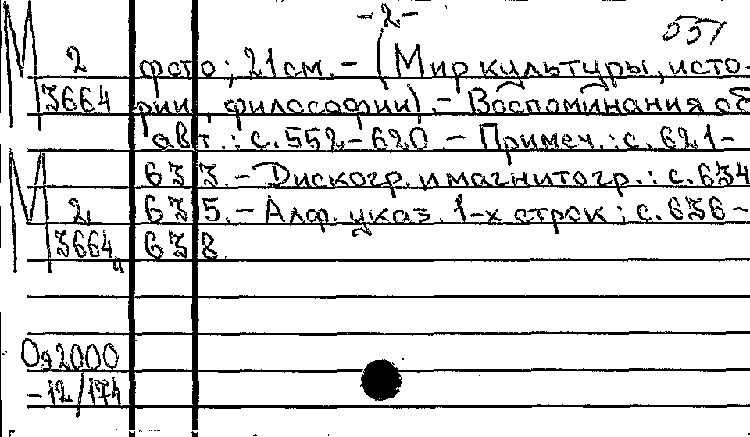 -2-
551
М 2 фото; 21 см. - (Мир культуры, исто-
3664 рии, философии). - Воспоминания об
авт.: с. 552-620. - Примеч.: с. 621-
М 633. - Дискогр. и магнитогр.: с. 634
2 635. - Алф. указ. 1-х строк: с. 636-
3664 638.
2000
-12/174